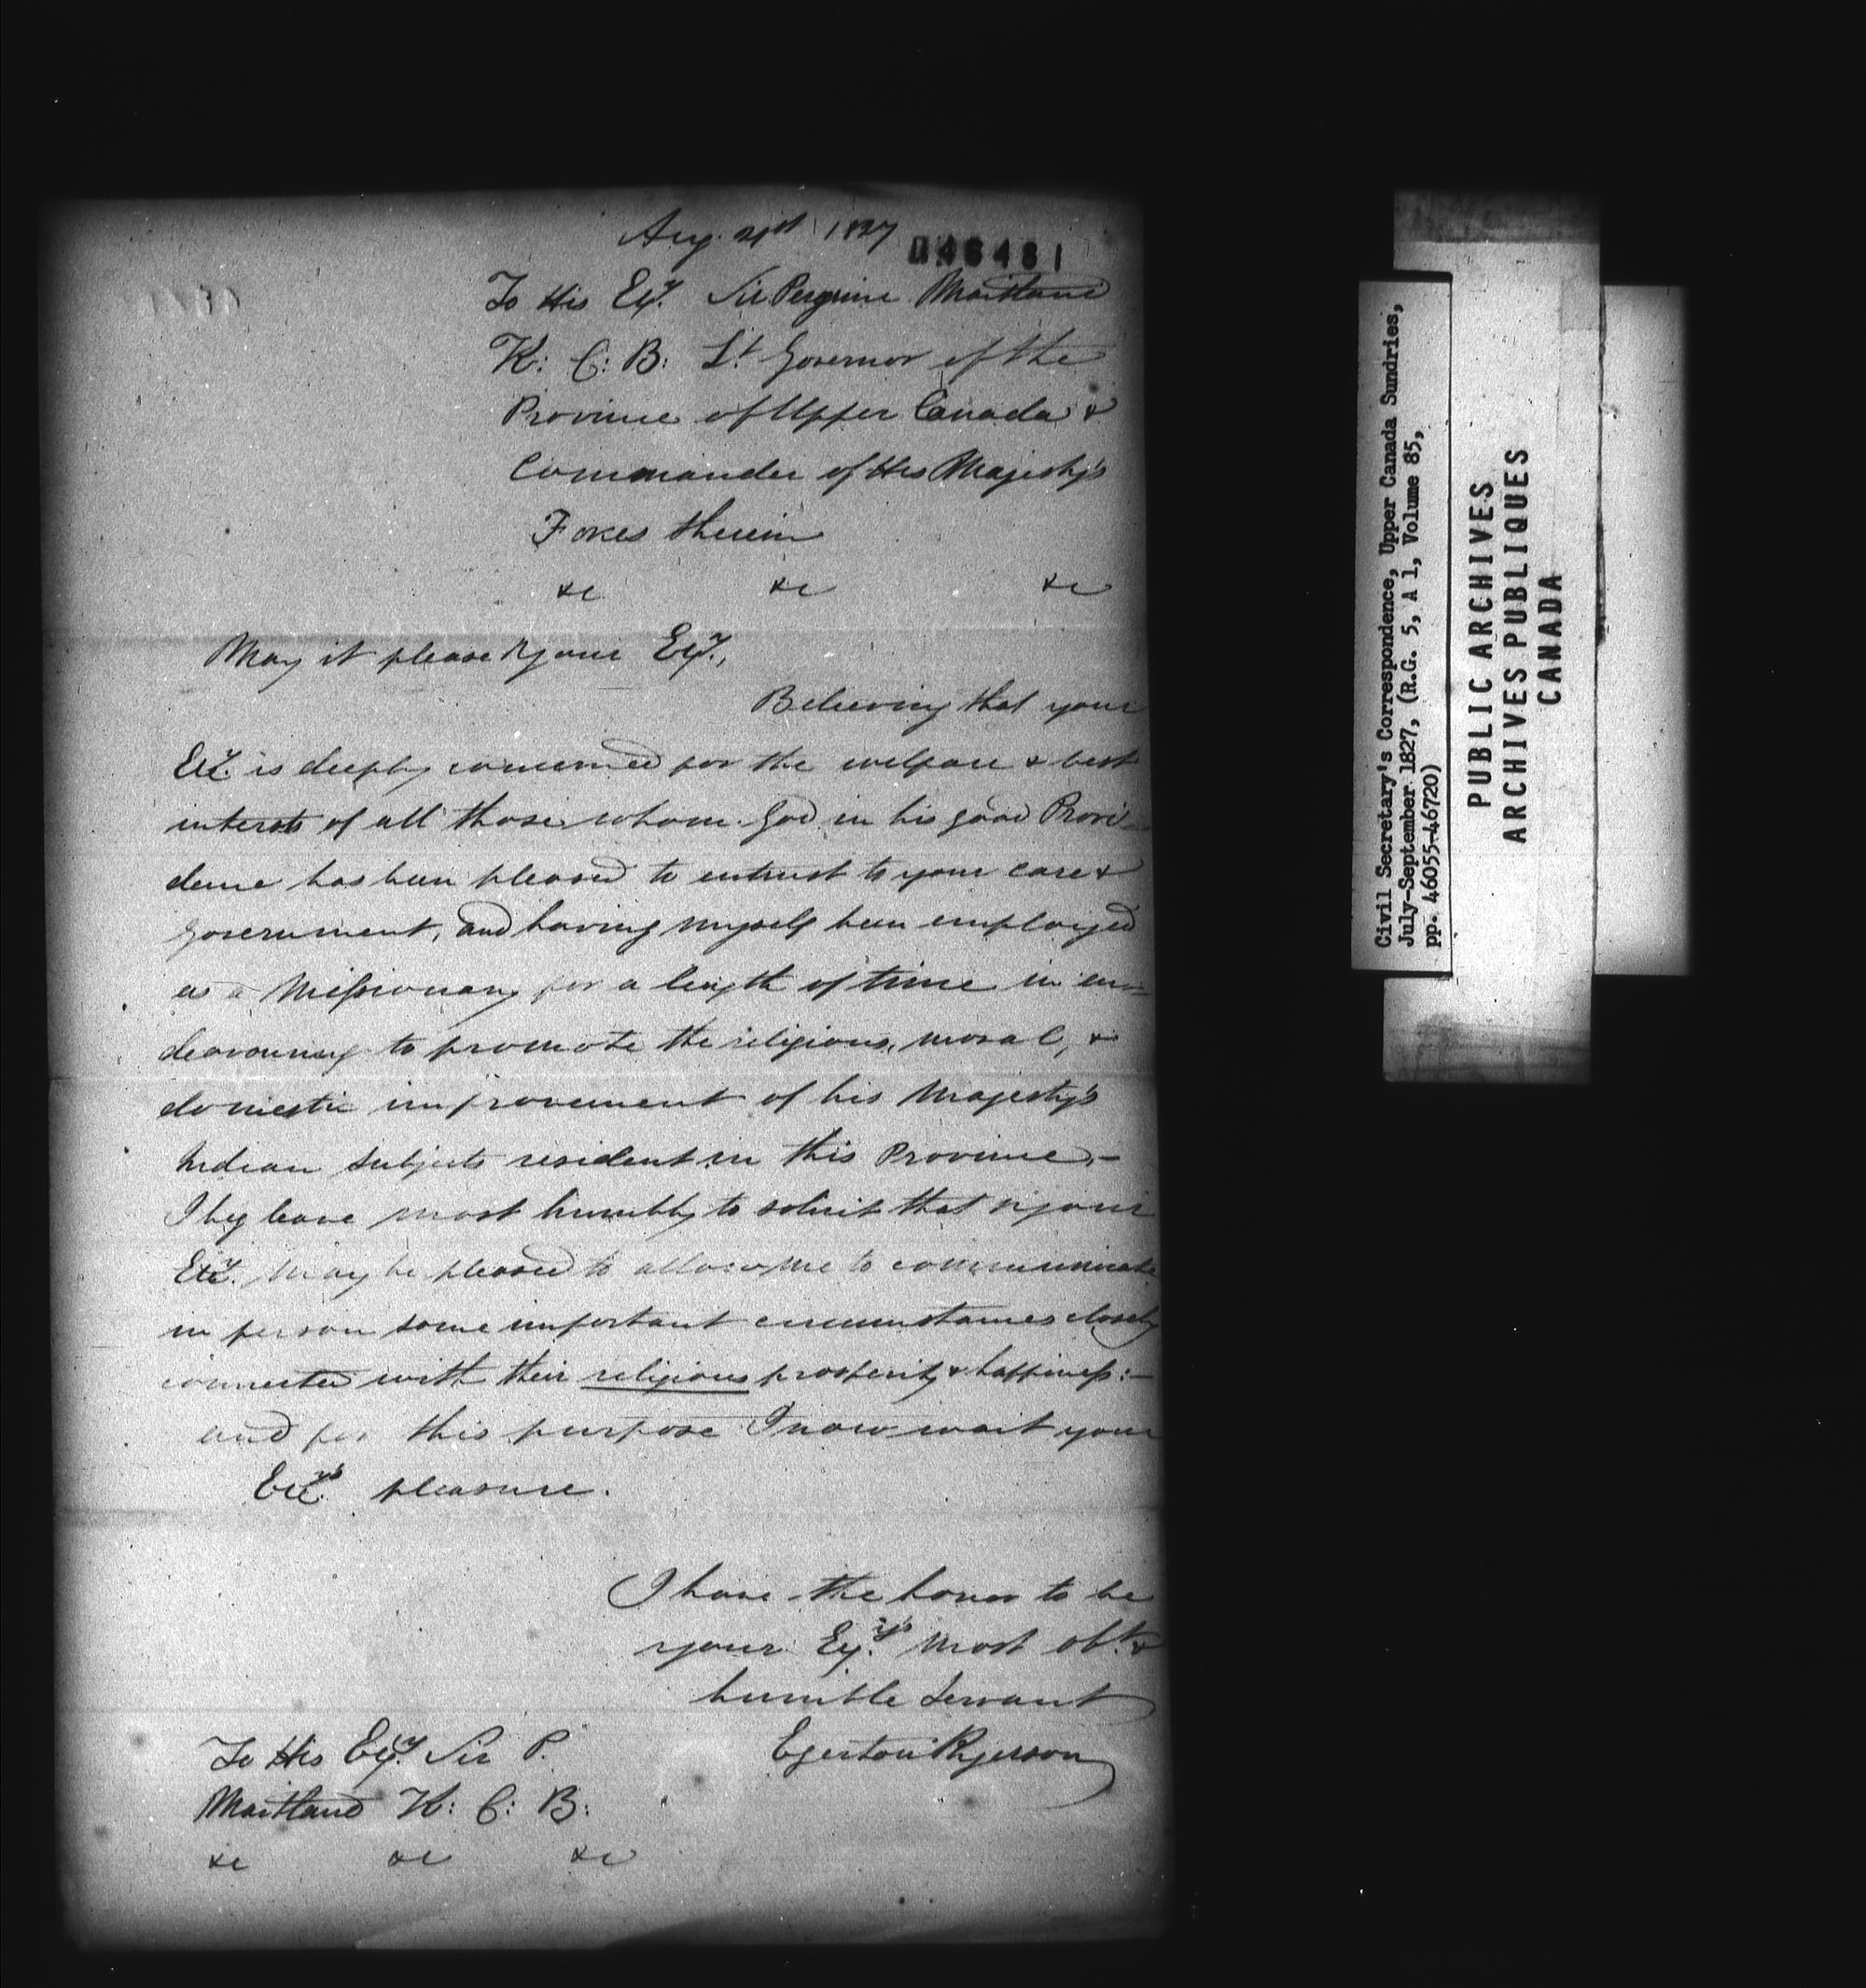 Aug. 21st 1827
046481
To His Exy. Sir Peregrine Maitland
K: C: B: Lt. Governor of the
Province of Upper Canada &
Commander of His Majesty's
Forces therein
&c &c &c
May it please your Exy.,
Believing that your
Excy. is deeply concerned for the welfare & best
interests of all those whom God in his good Provi-
dence has been pleased to entrust to your care &
government, and having myself been employed
as a Missionary for a length of time in en-
deavouring to promote the religious, moral, &
domestic improvement of his Majesty's
Indian subjects resident in this Province,-
I beg leave most humbly to solicit that your
Excy. may be pleased to allow me to communicate
in person some important circumstances closely
connected with their religious prosperity & happiness:-
and for this purpose I now wait your
Excy's pleasure.
I have the honor to be
your Exy's most obt. &
humble Servant
Egerton Ryerson
To His Exy. Sir P.
Maitland K: C: B:
&c &c &c
Civil Secretary's Correspondence, Upper Canada Sundries,
July-September 1827, (R.G. 5, A 1, Volume 85,
pp. 46055-46720)
PUBLIC ARCHIVES
ARCHIVES PUBLIQUES
CANADA